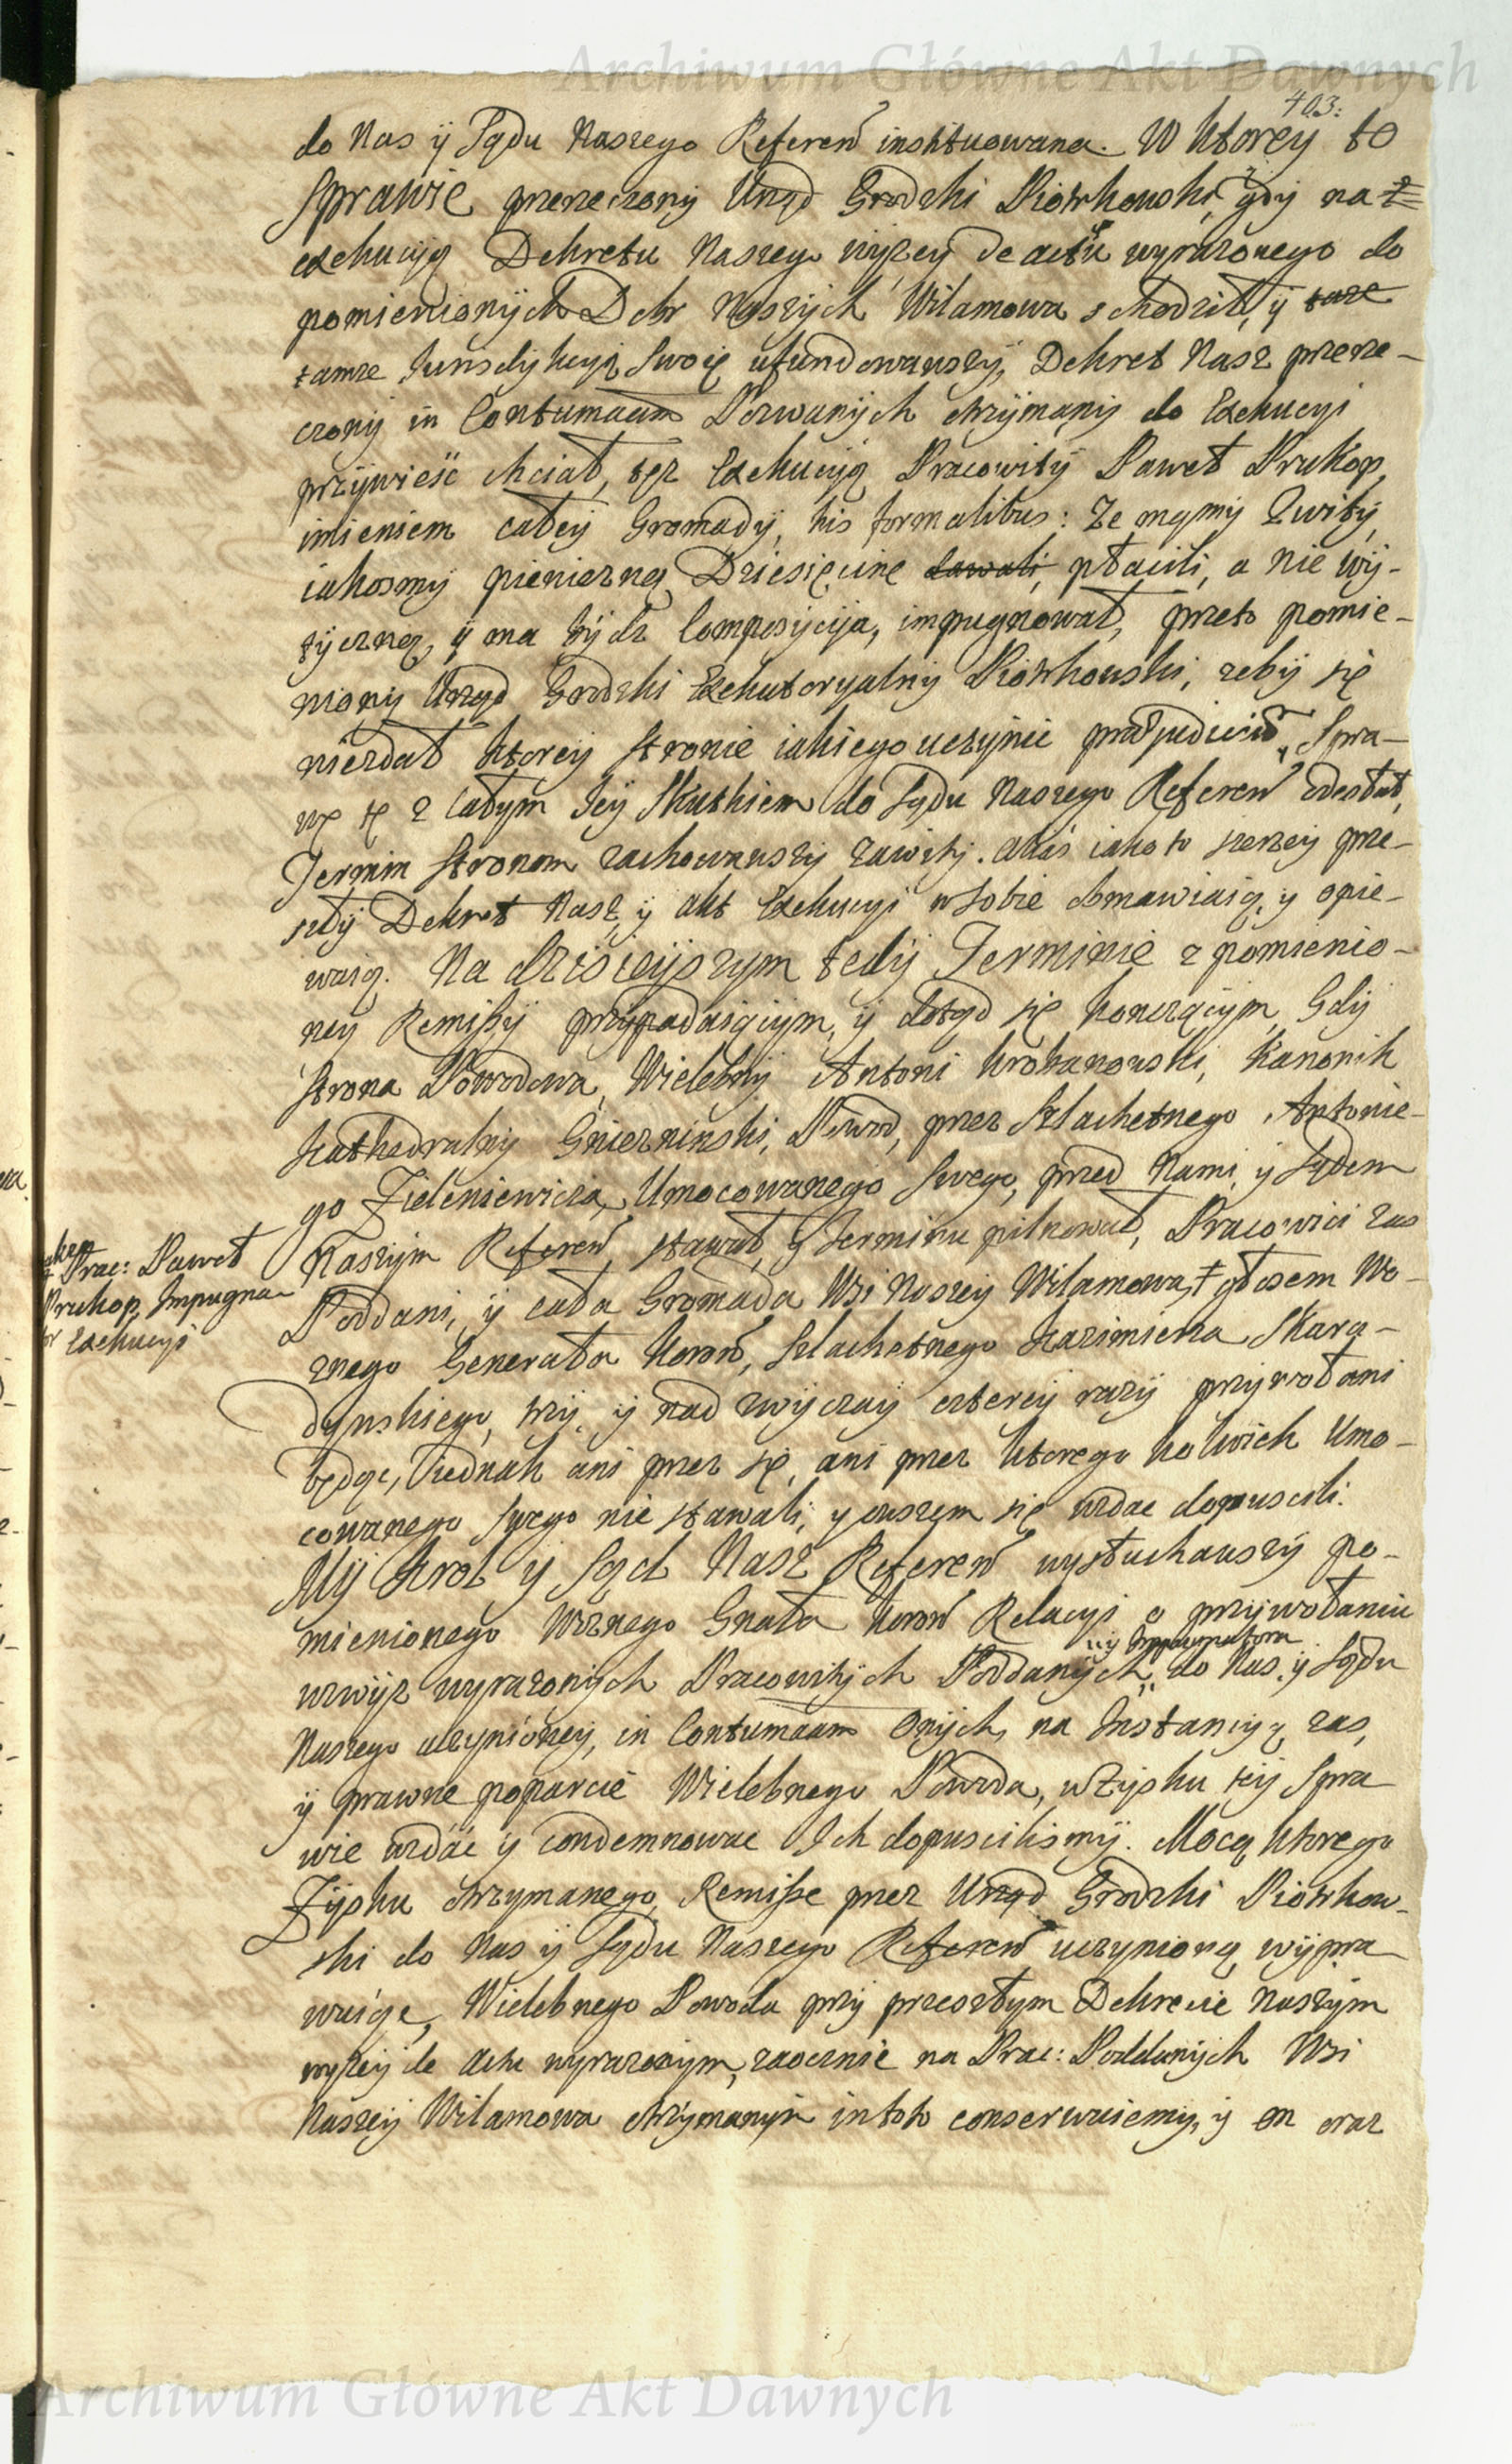 Archiwum Główne Akt Dawnych
403.
do Nas ÿ Sądu Naszego Referen̄ instituowana. W ktorey to
sprawie przerzeczony Urząd Grodzki Piotrkowski, gdy na
exekucyią Dekretu Naszego wyżey de actu wyrażonego do
pomienionych Dobr Naszych Wilamowa schodził, ÿ taze
tamże Jurisdykcyią Swoię ufundowawszy, Dekret Nasz przerze-
czony in Contumaciam Pozwanych otrzymany do Exekucyi
przywieść chciał, tęż Exekucyią Pracowity Paweł Prukop,
imieniem całey Gromady, his formalibus: że mąmy Kwity,
iakosmy pieniężną Dziesięcinę dawali, płacili, a nie wy-
tyczną, ÿ ma bydz Compozycyja, impugnował, przeto pomie-
niony Urząd Grodzki Exekutoryalny Piotrkowski, zeby się
niezdał ktorey stronie iakiego uczynic præjudicium, Spra-
wę tę z całym Jey Skutkiem do Sądu Naszego Referen̄ odesłał,
Termin Stronom zachowawszy zawity. alias iako to szerzey prze-
szły Dekret Nasz, ÿ akt Exekucyi w sobie obmawiaią, y opie-
waią. Na dzisieyszym tedy Terminie z pomienio-
ney Remissy przypadaiącym, ÿ dotąd się konczącym, Gdy
Strona Powodowa, Wielebny Antoni Krokanowski, Kanonik
Kathedralny Gniezninski, Powod, przez Szlachetnego Antonie-
go Zieleniewicza, Umocowanego Swego, przed Nami, y Sądem
Naszym Referen̄, stawał, y Terminu pilnował, Pracowici zas
Poddani, ÿ cała Gromada Wsi Naszey Wilamowa, głosem Wo-
znego Generała Koron̄, Szlachetnego Kazimierza Skarą-
dynskiego, trzy, ÿ nad zwyczay czterey razy przywołani
będąc, iednak ani przez się, ani przez ktorego kolwiek Umo-
cowanego Swego nie stawali, y owszem się wzdac dopuscili.
My Krol ÿ Sąd Nasz Referen̄ wysłuchawszy po-
mienionego Woznego Gnała Koron̄ Relacyi o przywołaniu
wzwyż wyrażonych Pracowitych Poddanych, ÿ Impugnatora do Nas, ÿ Sądu
Naszego uczynioney, in Contumaciam Onych, na Instancyią zas,
ÿ prawne poparcie Wielebnego Powoda, w Zysku tey Spra
wie wzdać y condemnowac Ich dopuscilismy. Mocą ktorego
Zysku otrzymanego, Remisse przez Urząd Grodzki Piotrkow-
ski do Nas ÿ Sądu Naszego Referen̄ uczynioną wypra
wuiąc, Wielebnego Powoda przy przeszłym Dekrecie Naszym
wyżey de actu wyrażonym, zaocznie na Prac: Poddanych Wsi
Naszey Wilamowa otrzymanym in toto conserwuiemy, y on oraz
Prac: Paweł
Prukop, Impugna-
tor Exekucyi
Archiwum Główne Akt Dawnych